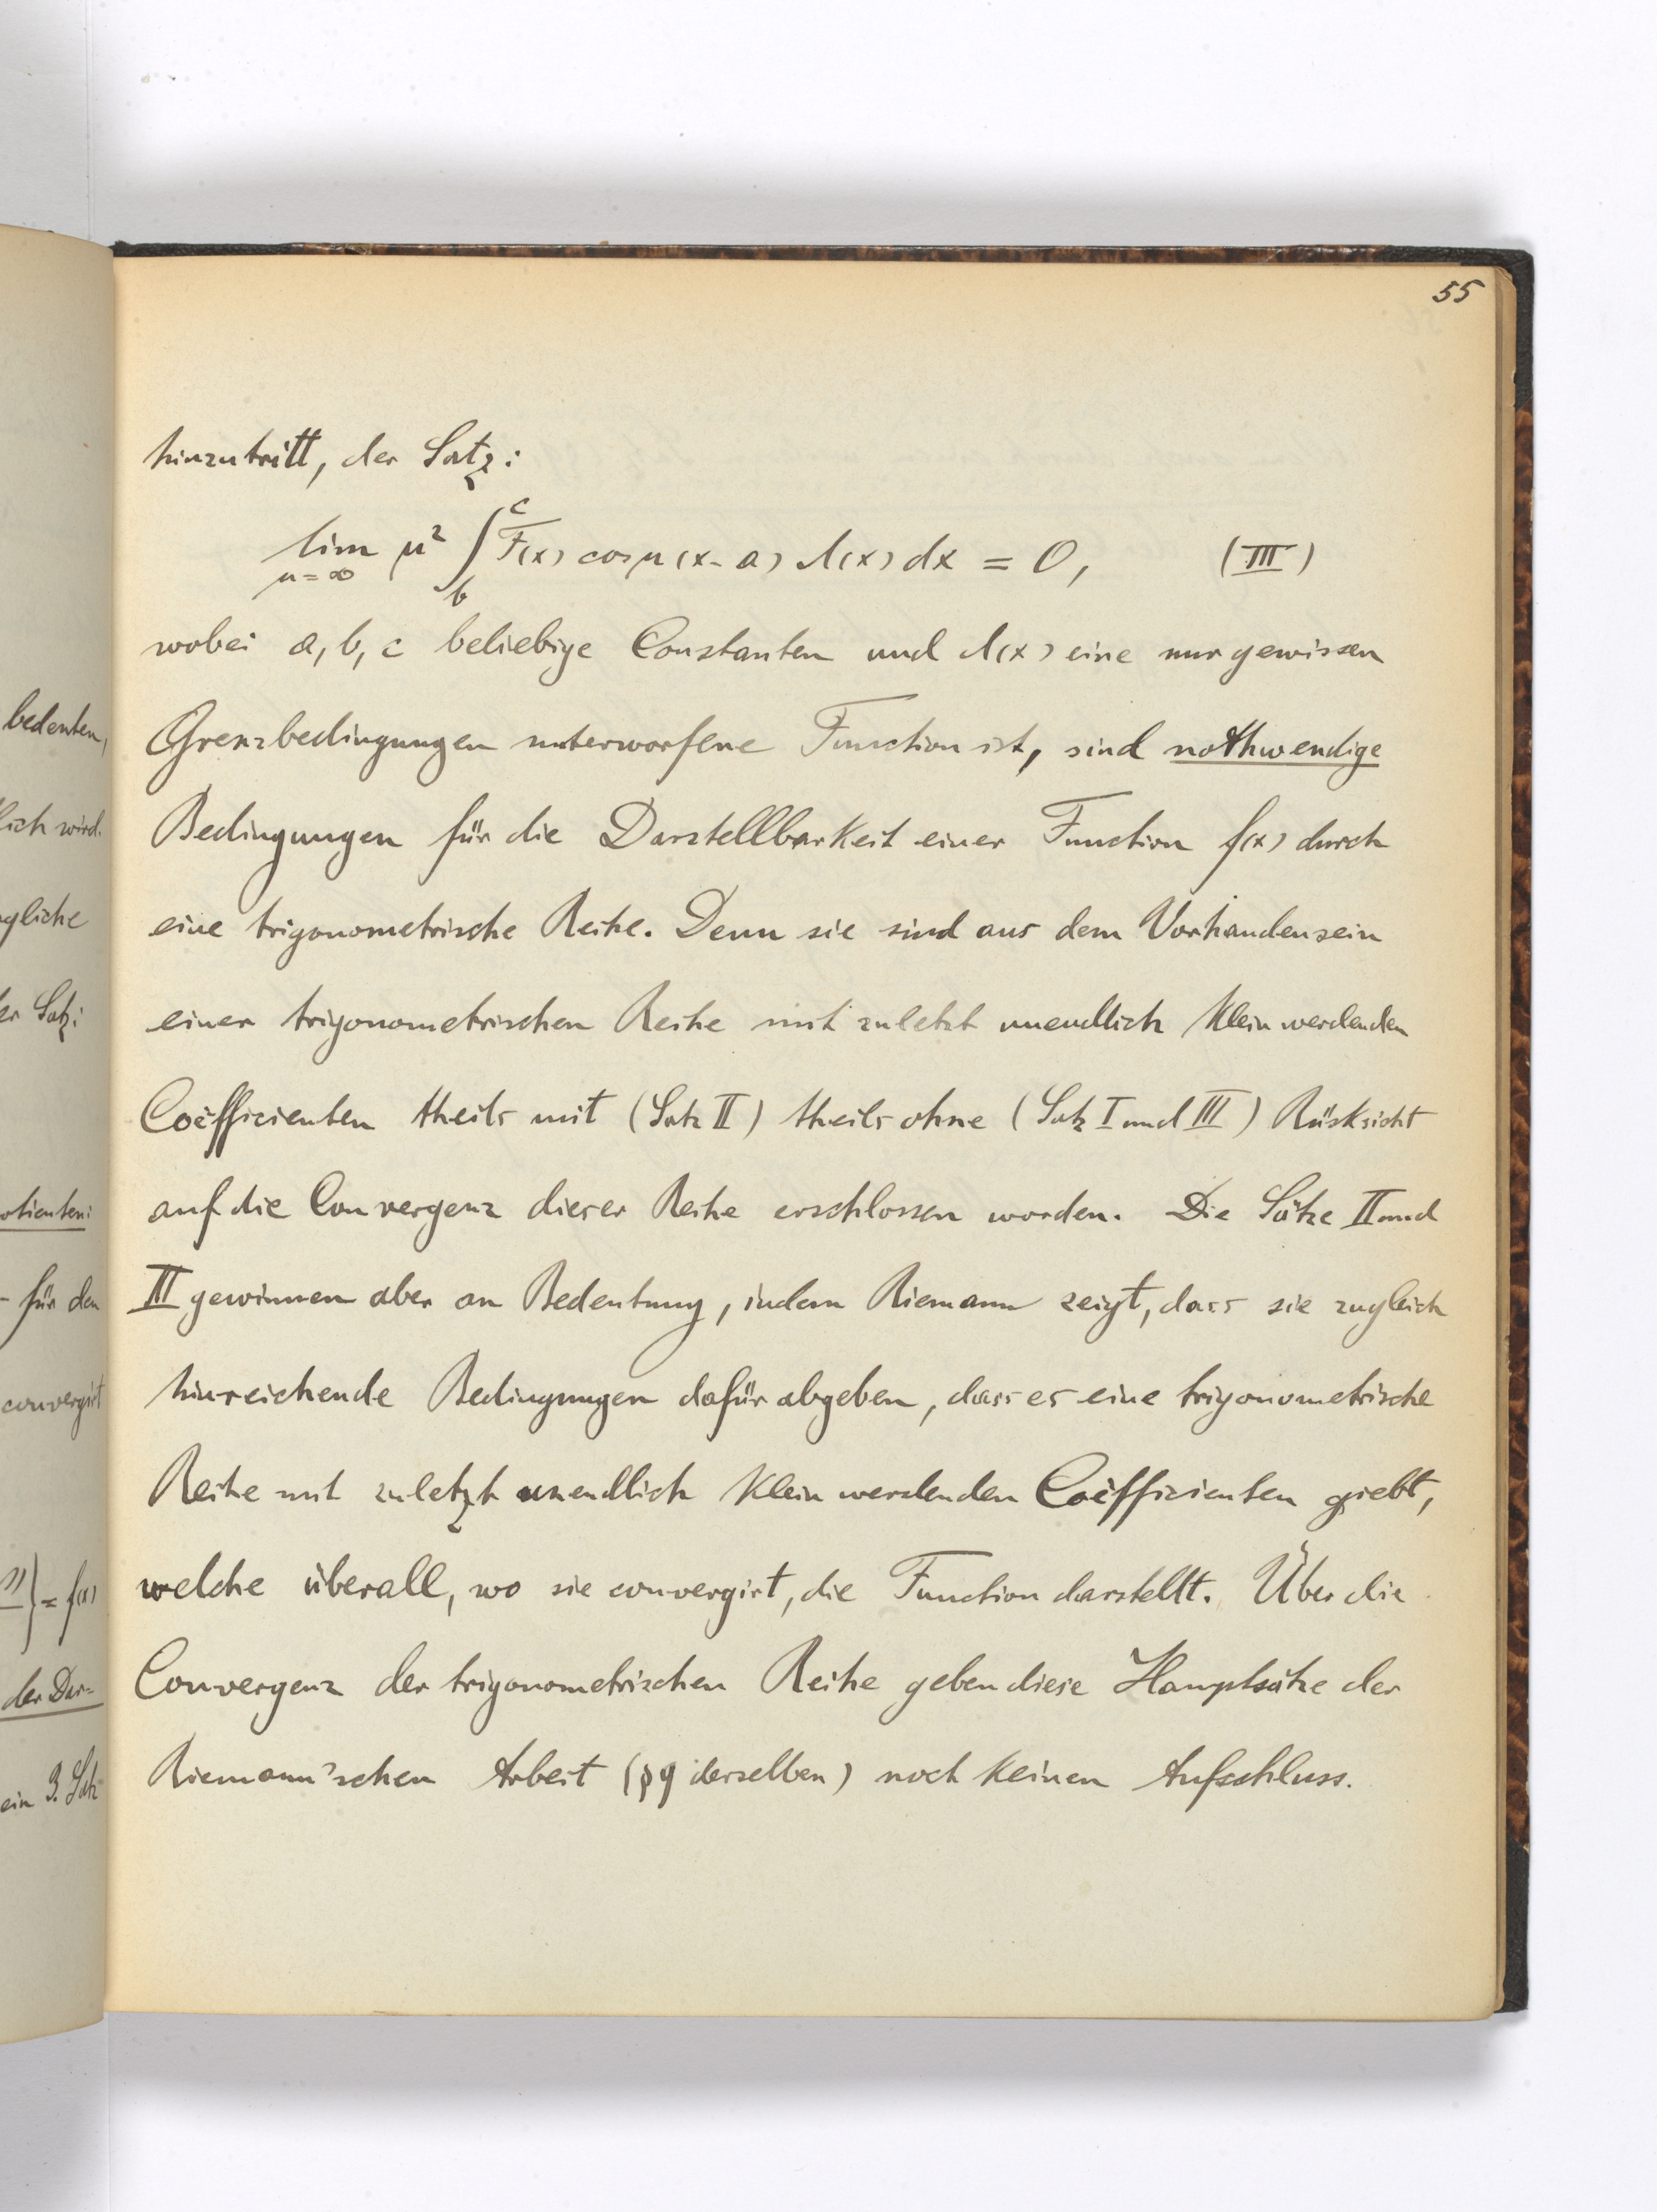 55
bedeuten,
lich wird.
gliche
er Satz:
otienten:
- für den
convergirt
} = f(x)
der Dar=
ein 3. Satz
hinzutritt, der Satz:
lim μ² ∫ F(x) cos μ (x - a) λ(x) dx = 0, (III)
μ = ∞ b c
wobei a, b, c beliebige Constanten und λ(x) eine nur gewissen
Grenzbedingungen unterworfene Function ist, sind nothwendige
Bedingungen für die Darstellbarkeit einer Function f(x) durch
eine trigonometrische Reihe. Denn sie sind aus dem Vorhandensein
einer trigonometrischen Reihe mit zuletzt unendlich klein werdenden
Coëfficienten theils mit (Satz II) theils ohne (Satz I und III) Rücksicht
auf die Convergenz dieser Reihe erschlossen worden. Die Sätze II und
III gewinnen aber an Bedeutung, indem Riemann zeigt, dass sie zugleich
hinreichende Bedingungen dafür abgeben, dass es eine trigonometrische
Reihe mit zuletzt unendlich klein werdenden Coëfficienten giebt,
welche überall, wo sie convergirt, die Function darstellt. Über die
Convergenz der trigonometrischen Reihe geben diese Hauptsätze der
Riemann'schen Arbeit (§9 derselben) noch keinen Aufschluss.